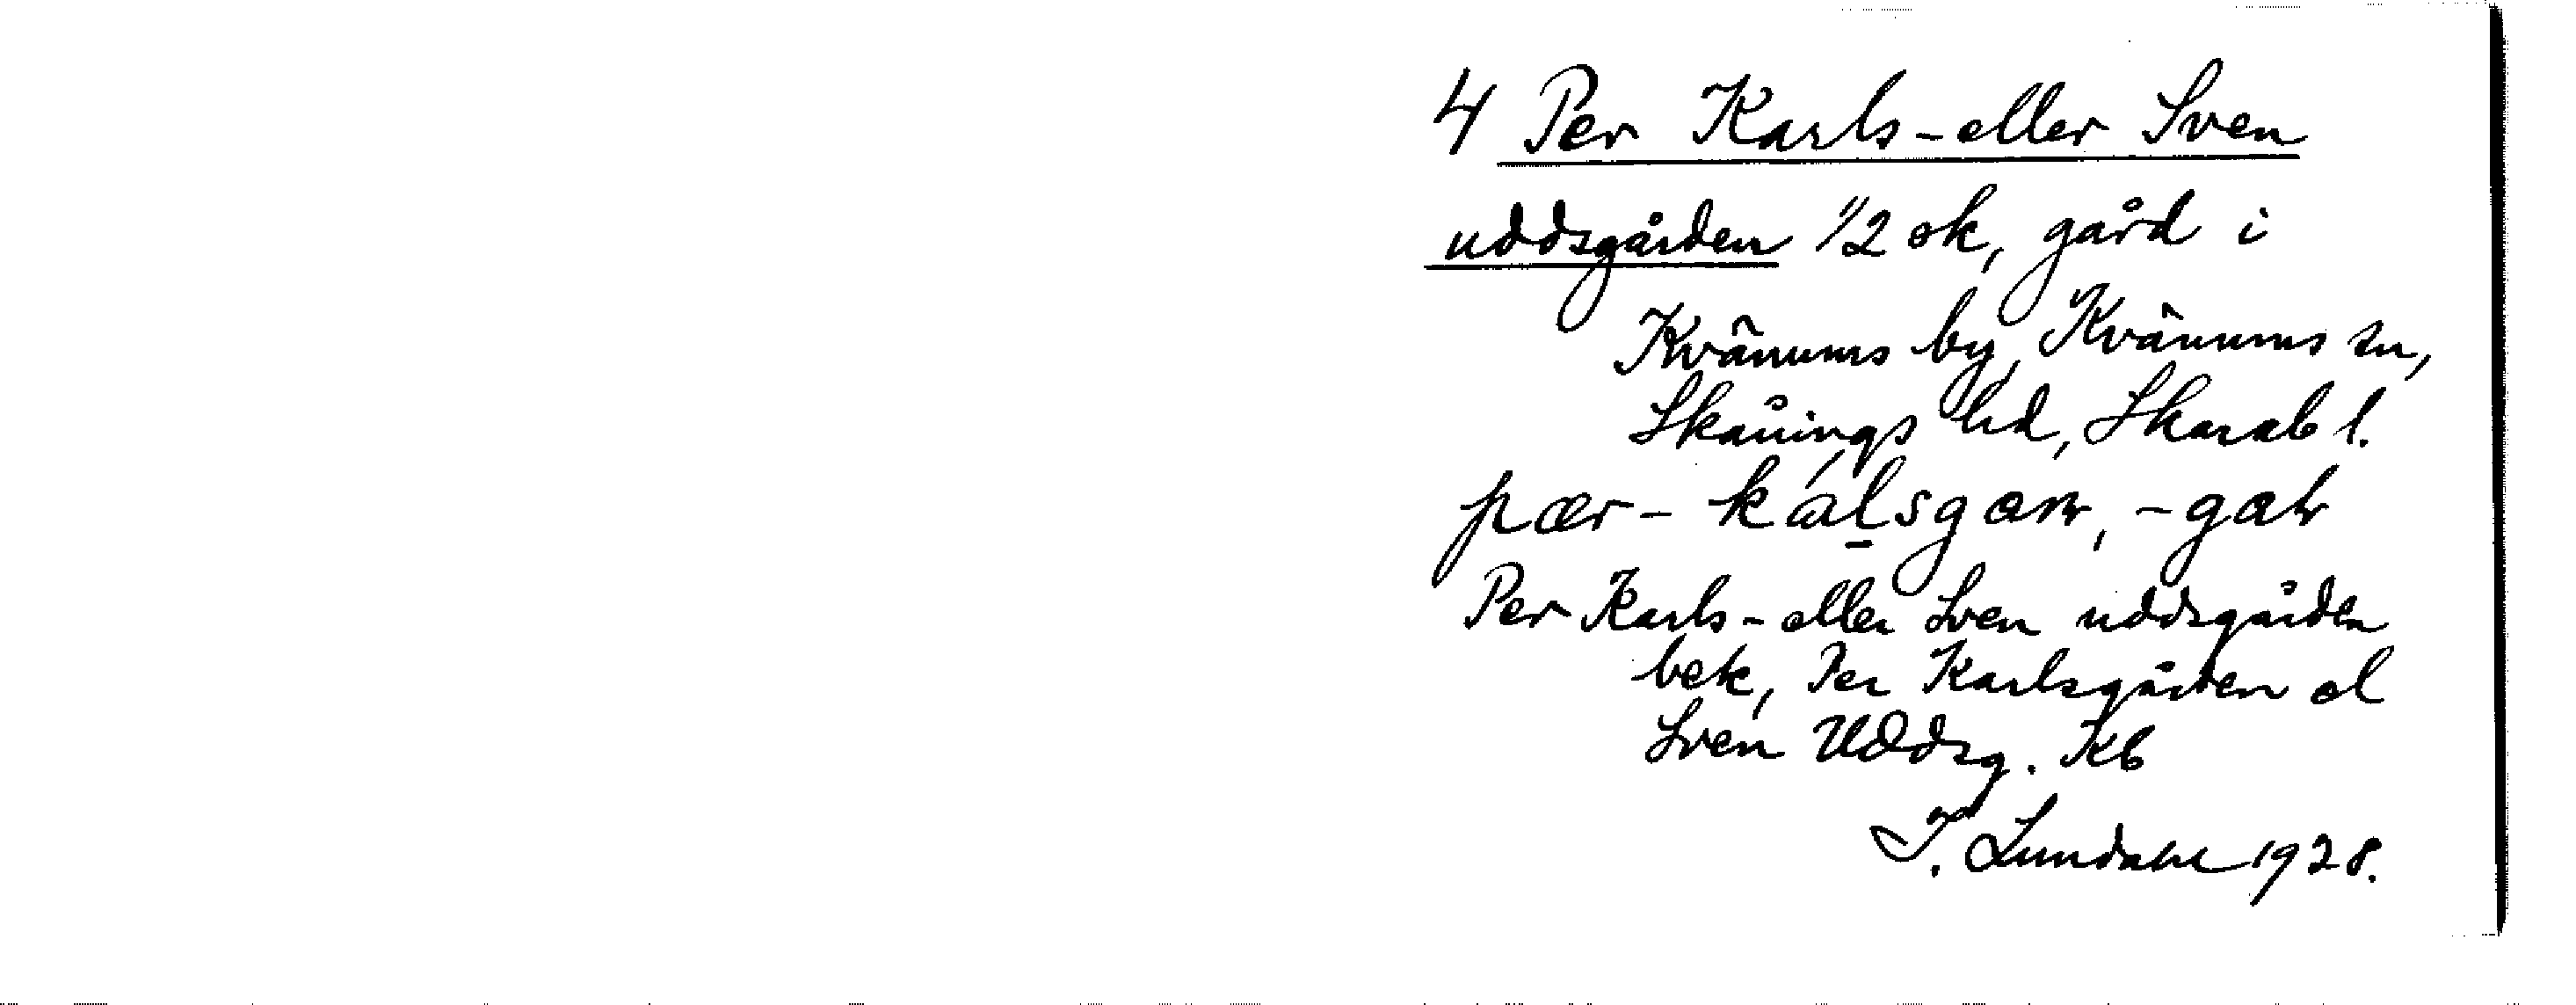 4 Per Karls-eller Sven
uddsgården 1/2 sk, gård i
Kvänums by, Kvänums sn,
Skånings hd, Skarab l.
pær-kálsgaɴ, -gaɴ
Per Karls-eller Sven uddsgården
bek, Per Karlsgården el
Sven Uddsg. Kb
I. Lundahl 1928.